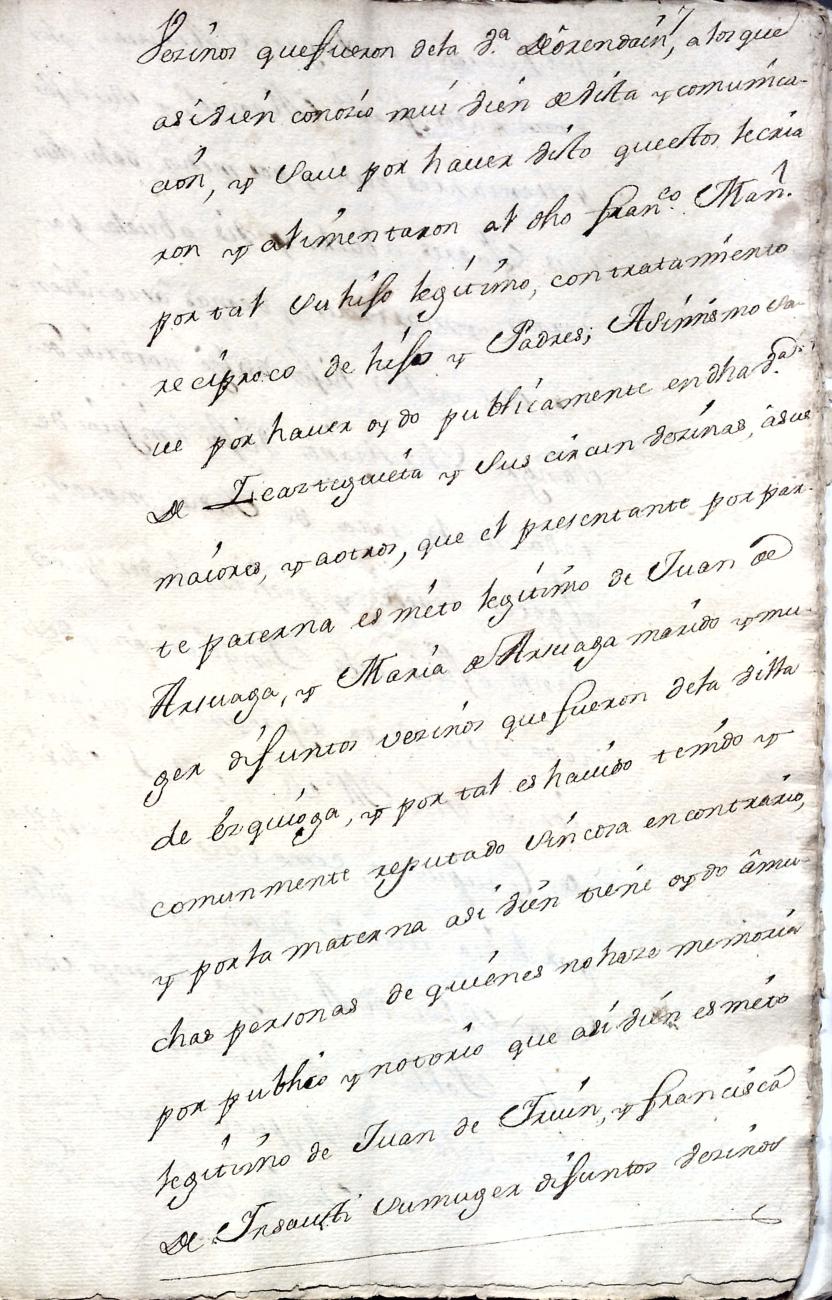 Vezinos que fueron dela va. De orendain, a los que
asi vien conozio mui vien de vista y comunica-
cion, y save por haver visto que estos le cria
ron y alimentaron al dho Franco. Manl.
por tal su hijo legitimo, con tratamiento
reciproco de hijo y Padres; Asimismo sa-
ve por haver oydo publicamente en dha va.
De Icazteguieta y sus circun vezinas, â sus
maiores, y a otros, que el presentante por par-
te paterna es nieto legitimo de Juan de
Arsuaga, y Maria de Arsuaga marido y mu-
ger difuntos vezinos que fueron dela villa
de Ezquioga, y por tal es havido tenido y
comunmente reputado sin cosa en contrario,
y por la materna asi vien tiene oydo â mu-
chas personas de quienes no haze memoria
por publico y notorio que asi vien es nieto
legitimo de Juan de Iruin, y Francisca
De Insausti su muger difuntos vezinos